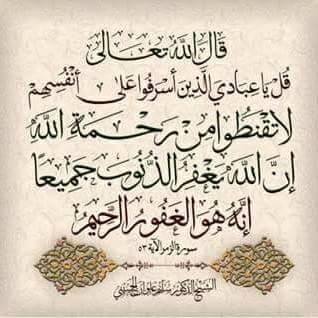 قَالَ اللَّهُ تَعَالَى
قُلْ يَا عِبَادِيَ الَّذِينَ أَسْرَفُوا عَلَى أَنْفُسِهِمْ
لَا تَقْنَطُوا مِنْ رَحْمَةِ اللَّهِ
إِنَّ اللَّهَ يَغْفِرُ الذُّنُوبَ جَمِيعًا
إِنَّهُ هُوَ الْغَفُورُ الرَّحِيمُ
سورة الزمر الآية ٥٣
الشيخ الدكتور سالم علوان الحسيني